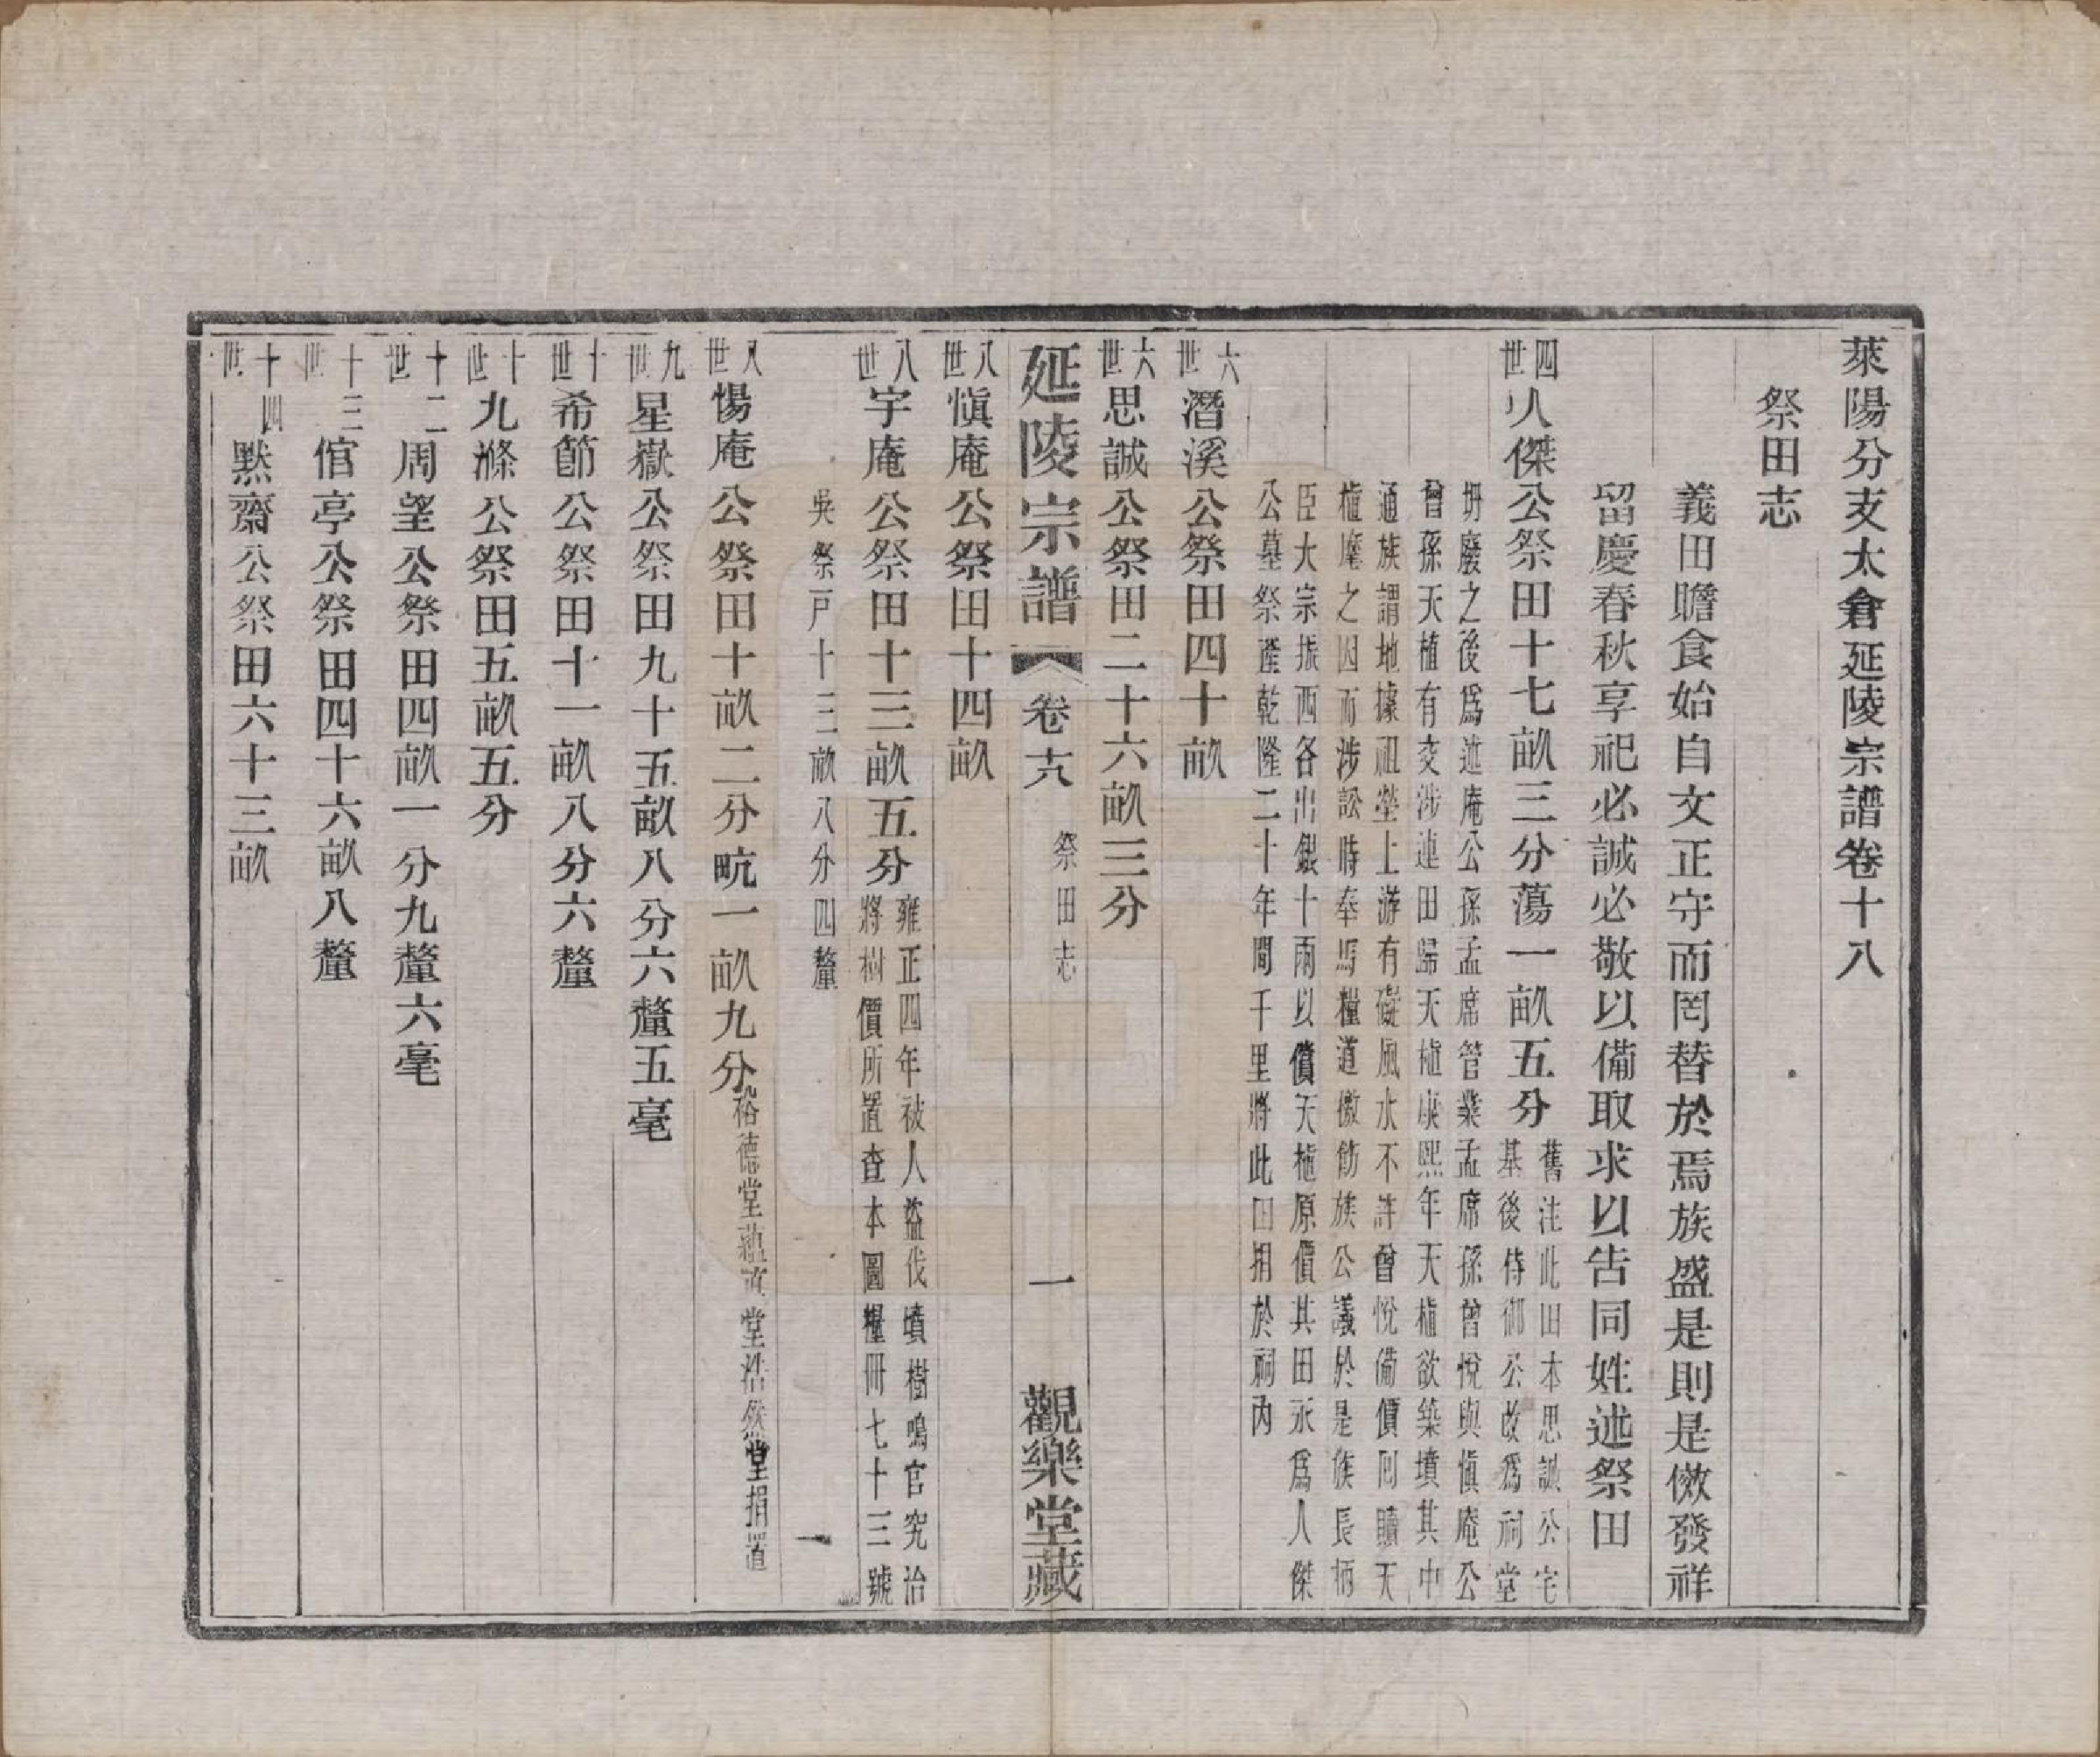 萊陽分支太倉延陵宗譜卷十八
祭田志
義田贍食始自文正守而罔替於焉族盛是則是傚發祥
留慶春秋享祀必誠必敬以備取求以告同姓述祭田
四世人傑公祭田十七畝三分蕩一畝五分
舊注此田本思誠公宅
基後侍御公改為祠堂
坍廢之後為述庵公孫孟席管業孟席孫曾悅與愼庵公
曾孫天植有交涉連田歸天植康熙年天植欲築墳其中
通族謂地據祖塋上游有礙風水不許曾悅備價回贖天
植塵之因而涉訟時奉馬糧道檄飭族公議於是族長柄
臣大宗振西各出銀十兩以償天植原價其田永為人傑
公墓祭產乾隆二十年間千里將此田捐於祠內
六世潛溪公祭田四十畝
六世思誠公祭田二十六畝三分
延陵宗譜 卷十八 祭田志 一 觀樂堂藏
八世愼庵公祭田十四畝
八世宇庵公祭田十三畝五分
雍正四年被人盜伐墳樹鳴官究治
將樹價所置查本圖糧冊七十三號
吳祭戸十三畝八分四釐 一
八世惕庵公祭田十畝二分䟘一畝九分
裕德堂蘊眞堂浩然堂捐置
九世星嶽公祭田九十五畝八分六釐五毫
十世希節公祭田十一畝八分六釐
十世九滌公祭田五畝五分
十二世周望公祭田四畝一分九釐六毫
十三世倌亭公祭田四十六畝八釐
十四世默齋公祭田六十三畝